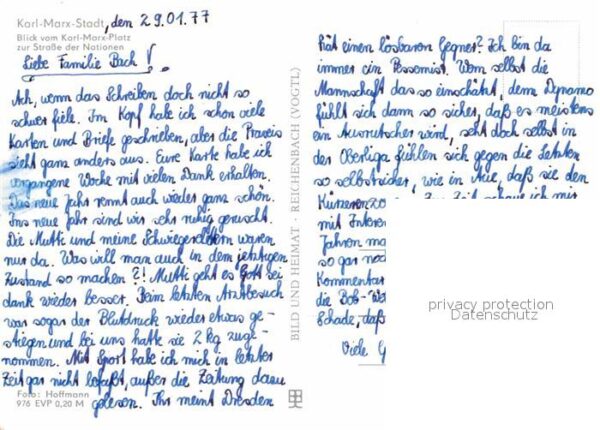 Karl-Marx-Stadt, den 29.01.77
Blick vom Karl-Marx-Platz
zur Straße der Nationen
Liebe Familie Bach!
Ach, wenn das Schreiben doch nicht so
schwer fiele. Im Kopf habe ich schon viele
Karten und Briefe geschrieben, aber die Praxis
sieht ganz anders aus. Eure Karte habe ich
vergangene Woche mit vielen Dank erhalten.
Das neue Jahr rennt auch wieder ganz schön.
Ins neue Jahr sind wir sehr ruhig gerutscht.
Die Mutti und meine Schwiegereltern waren
nur da. Was will man auch in dem jetzigen
Zustand so machen?! Mutti geht es Gott sei
dank wieder besser. Beim letzten Arztbesuch
war sogar der Blutdruck wieder etwas ge-
stiegen und bei uns hatte sie 2 kg zuge-
nommen. Mit Sport habe ich mich in letzter
Zeit gar nicht befaßt, außer die Zeitung dazu
gelesen. Ihr meint Dresden
Foto: Hoffmann
976 EVP 0,20 M
BILD UND HEIMAT · REICHENBACH (VOGTL)
hat einen lösbaren Gegner? Ich bin da
immer ein Pessemist. Wenn selbst die
Mannschaft das so einschätzt, denn Dynamo
fühlt sich dann so sicher, daß es meistens
ein Ausrutscher wird, seht doch selbst in
der Oberliga fühlen sich gegen die Letzten
so selbstsicher, wie in Aue, daß sie den
Kürzeren zo
mit Interes
Jahren ma
so gar no
Kommentar
die Bob-We
Schade, daß
Viele G
privacy protection
Datenschutz